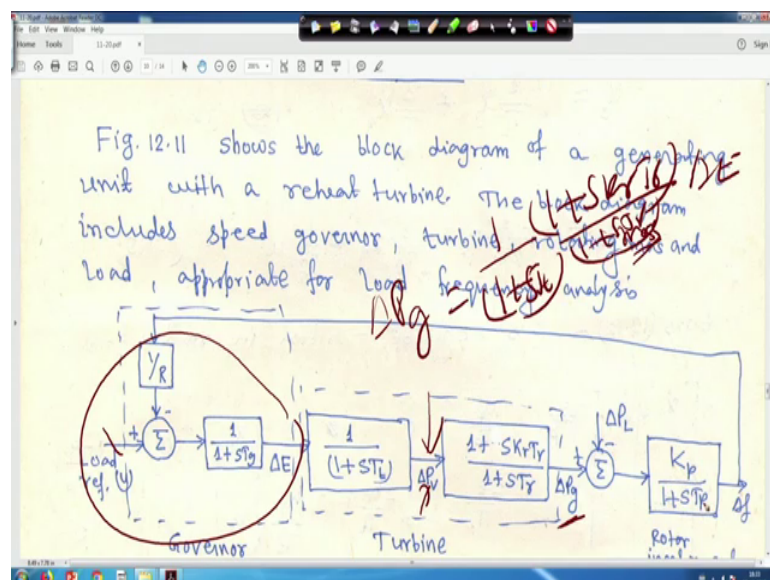 11-20.pdf - Adobe Acrobat Reader DC
File Edit View Window Help
Home Tools 11-20.pdf × Sign
Fig. 12.11 shows the block diagram of a generating
unit with a reheat turbine. The block diagram
includes speed governor, turbine, rotating mass and
load, appropriate for load frequency analysis
ΔPg = 1 (1+SKrTr) ΔE
(1+St) (1+
1/R
+ - Σ
1
1+STg
ΔE
1
(1+STt)
ΔPv
1 + SKrTr
1+STr
ΔPg
ΔPL
+ - Σ
Kp
1+STp
Δf
Load
ref. (U)
Governor Turbine Rotor